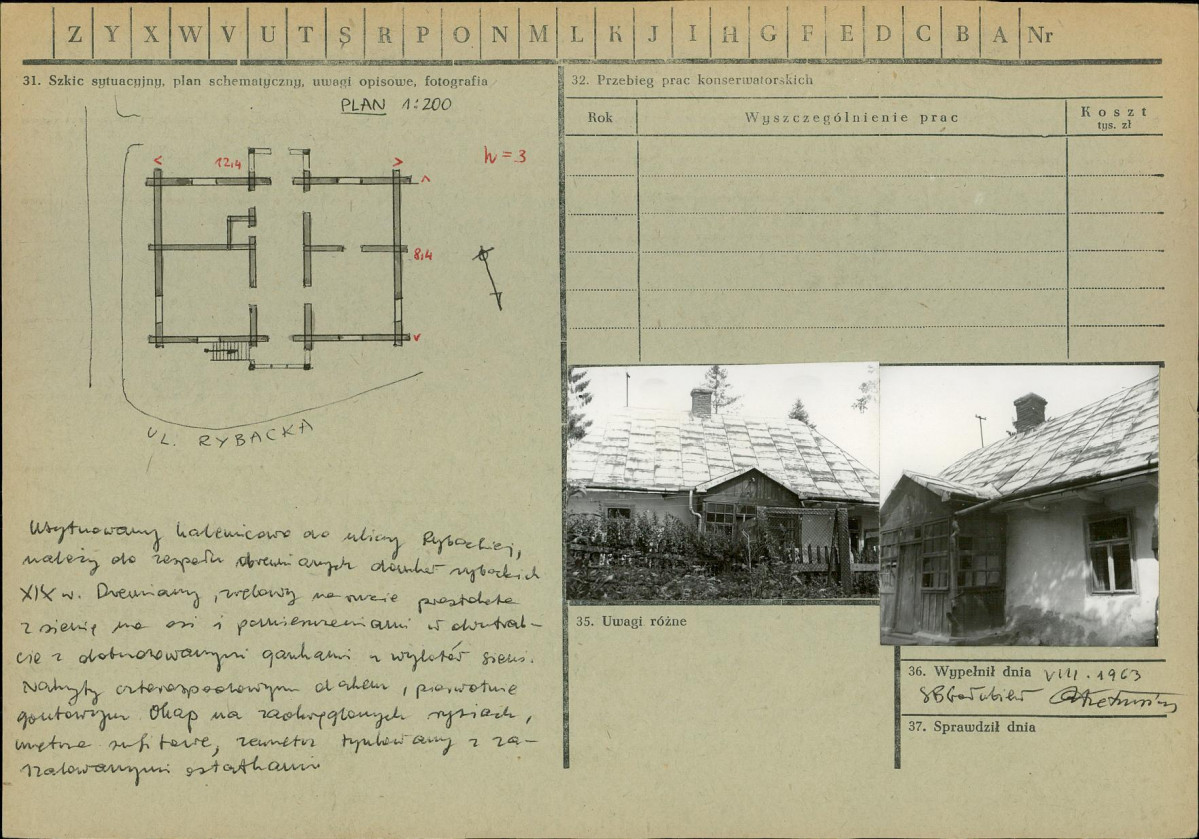 Z Y X W V U T Ș R P O N M L K J I H G F E D C B A Nr
31. Szkic sytuacyjny, plan schematyczny, uwagi opisowe, fotografia
PLAN 1:200
12,4
h = 3
8,4
UL. RYBACKA
Usytuowany kalenicowo do ulicy Rybackiej,
należy do zespołu drewnianych domków rybackich
XIX w. Drewniany, zrębowy na rzucie prostokąta
z sienią na osi i pomieszczeniami w dwutrak-
cie z dobudowanymi gankami u wylotów sieni.
Nakryty czterospadowym dachem, pierwotnie
gontowym. Okap na zaokrąglonych rysiach,
wnętrza sufitowe, zewnątrz tynkowany z za-
szalowanymi ostatkami
32. Przebieg prac konserwatorskich
Rok
Wyszczególnienie prac
Koszt
tys. zł
35. Uwagi różne
36. Wypełnił dnia VIII. 1963
37. Sprawdził dnia